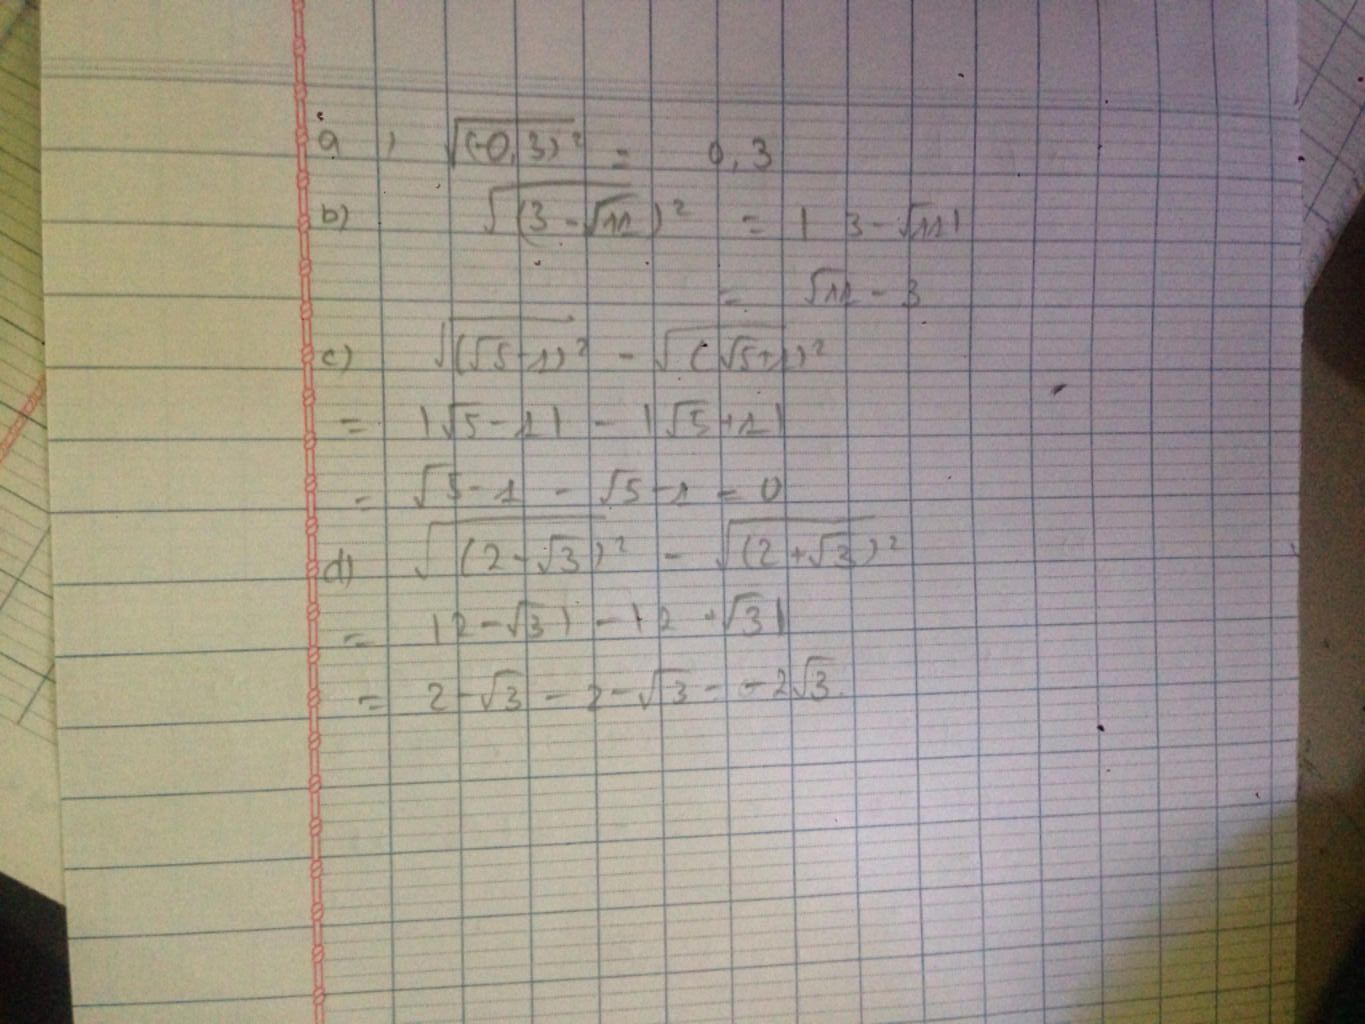 a) √(-0,3)² = 0,3
b) √(3-√11)² = |3-√11|
= √11 - 3
c) √(√5-1)² - √(√5+1)²
= |√5-1| - |√5+1|
= √5-1 - √5-1 = 0
d) √(2-√3)² - √(2+√3)²
= |2-√3| - |2+√3|
= 2-√3 - 2-√3 = -2√3.